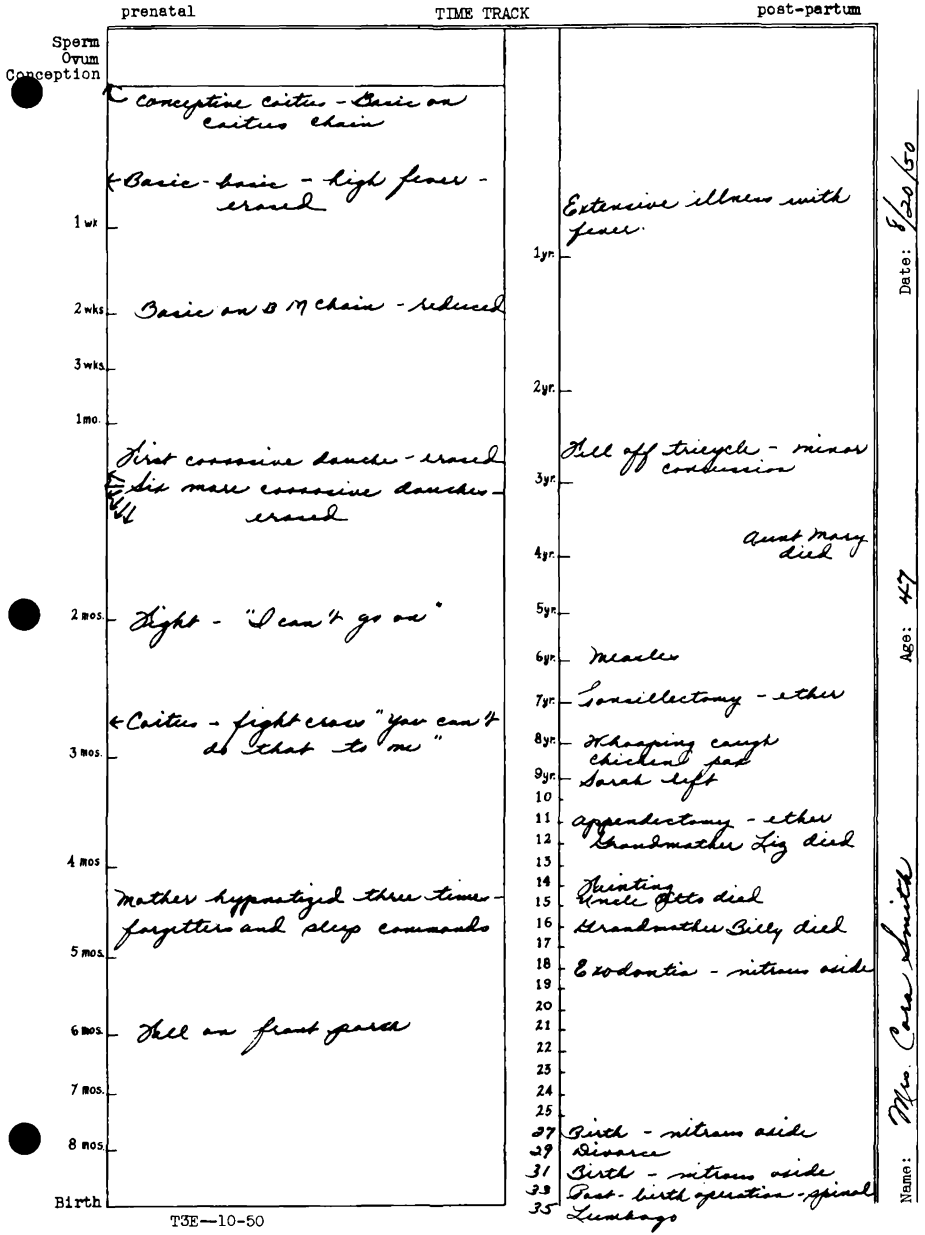 prenatal TIME TRACK post-partum
Sperm
Ovum
Conception
Conceptive coitus - Basic on
coitus chain
Basic-basic - high fever -
erased
1 wk
2 wks. Basic on B M Chain - reduced
3 wks.
1 mo.
First corrosive douche - erased
Six more corrosive douches -
erased
2 mos. Fight - "I can't go on"
Coitus - fight cross "You can't
do that to me"
3 mos.
4 mos
Mother hypnotized three times -
forgetters and sleep commands
5 mos.
6 mos. Fall on front porch
7 mos.
8 mos.
Birth
T3E--10-50
Extensive illness with
fever.
1yr.
2yr.
Fell off tricycle - minor
concussion
3yr.
Aunt Mary
died
4yr.
5yr.
6yr. Measles
7yr. Tonsillectomy - ether
8yr. Whooping cough
Chicken pox
9yr. Sarah left
10
11 Appendectomy - ether
12 Grandmother Liz died
13
14 Fainting
15 Uncle Otto died
16 Grandmother Billy died
17
18 Exodontia - nitrous oxide
19
20
21
22
23
24
25
27 Birth - nitrous oxide
29 Divorce
31 Birth - nitrous oxide
33 Post-birth operation - spinal
35 Lumbago
Name: Mrs. Cora Smith Age: 47 Date: 8/20/50